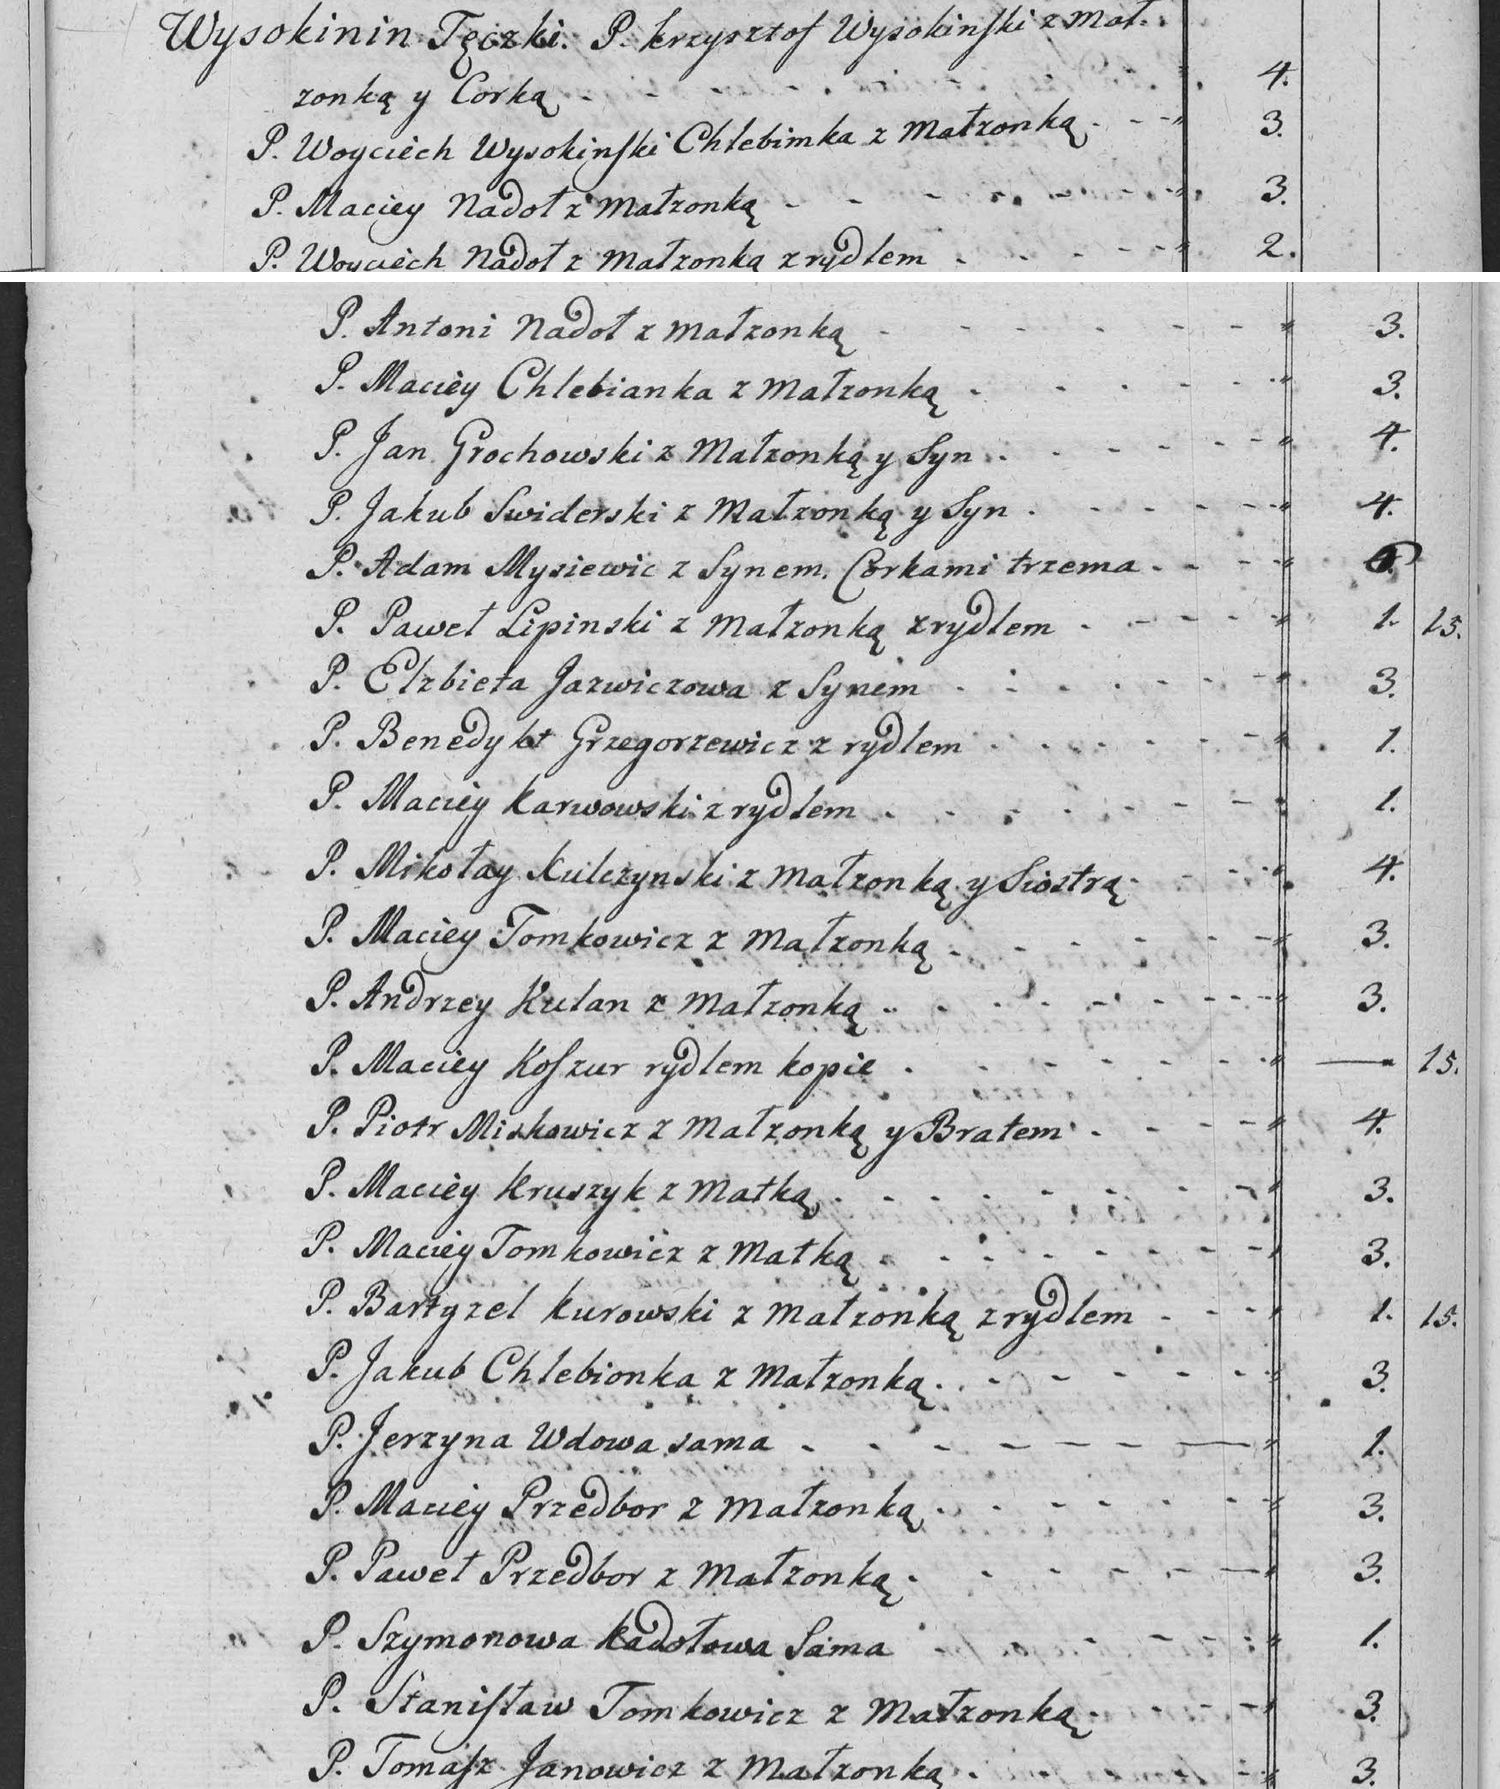 Wysokinin Tęczki. P. Krzysztof Wysokinſki z Mał.
zonką y Corką 4.
P. Woyciech Wysokinſki Chlebimka z Małzonką 3.
P. Maciey Nadoł z Małzonką 3.
P. Woyciech Nadoł z Małzonką z rydlem 2.
P. Antoni Nadoł z Małzonką 3.
P. Maciey Chlebianka z Małzonką 3.
P. Jan Grochowski z Małzonką y Syn 4.
P. Jakub Swiderski z Małzonką y Syn 4.
P. Adam Mysiewic z Synem, Corkami trzema
P. Paweł Lipinski z Małzonką z rydlem 1. 15.
P. Elzbieta Jazwiczowa z Synem 3.
P. Benedykt Grzegorzewicz z rydlem 1.
P. Maciey Karwowski z rydlem 1.
P. Mikołay Kulczynski z Małzonką y Siostrą 4.
P. Maciey Tomkowicz z Małzonką 3.
P. Andrzey Kulan z Małzonką 3.
P. Maciey Koſzur rydlem kopie — 15.
P. Piotr Miskowicz z Małzonką y Bratem 4.
P. Maciey Kruszyk z Matką 3.
P. Maciey Tomkowicz z Matką 3.
P. Bartyzel Kurowski z Małzonką z rydlem 1. 15.
P. Jakub Chlebionka z Małzonką 3.
P. Jerzyna Wdowa sama 1.
P. Maciey Przedbor z Małzonką 3.
P. Paweł Przedbor z Małzonką 3.
P. Szymonowa Kadołowa Sama 1.
P. Staniſław Tomkowicz z Małzonką 3.
P. Tomaſz Janowicz z Małzonką 3.